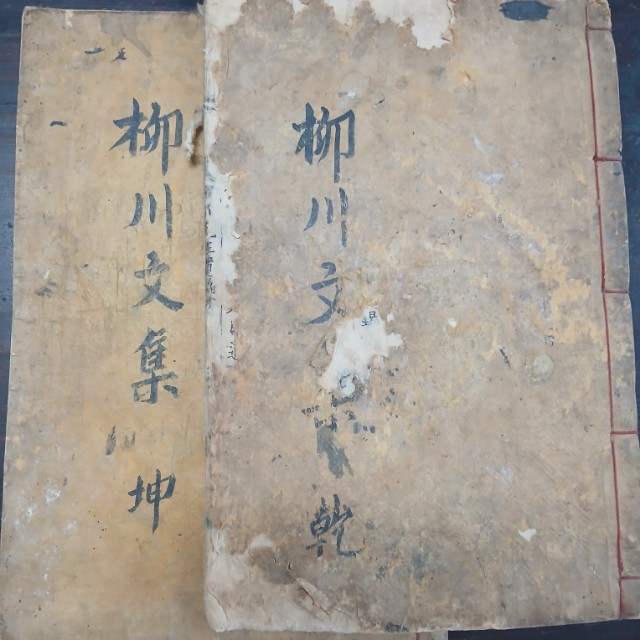 柳川文
乾
柳川文集
坤